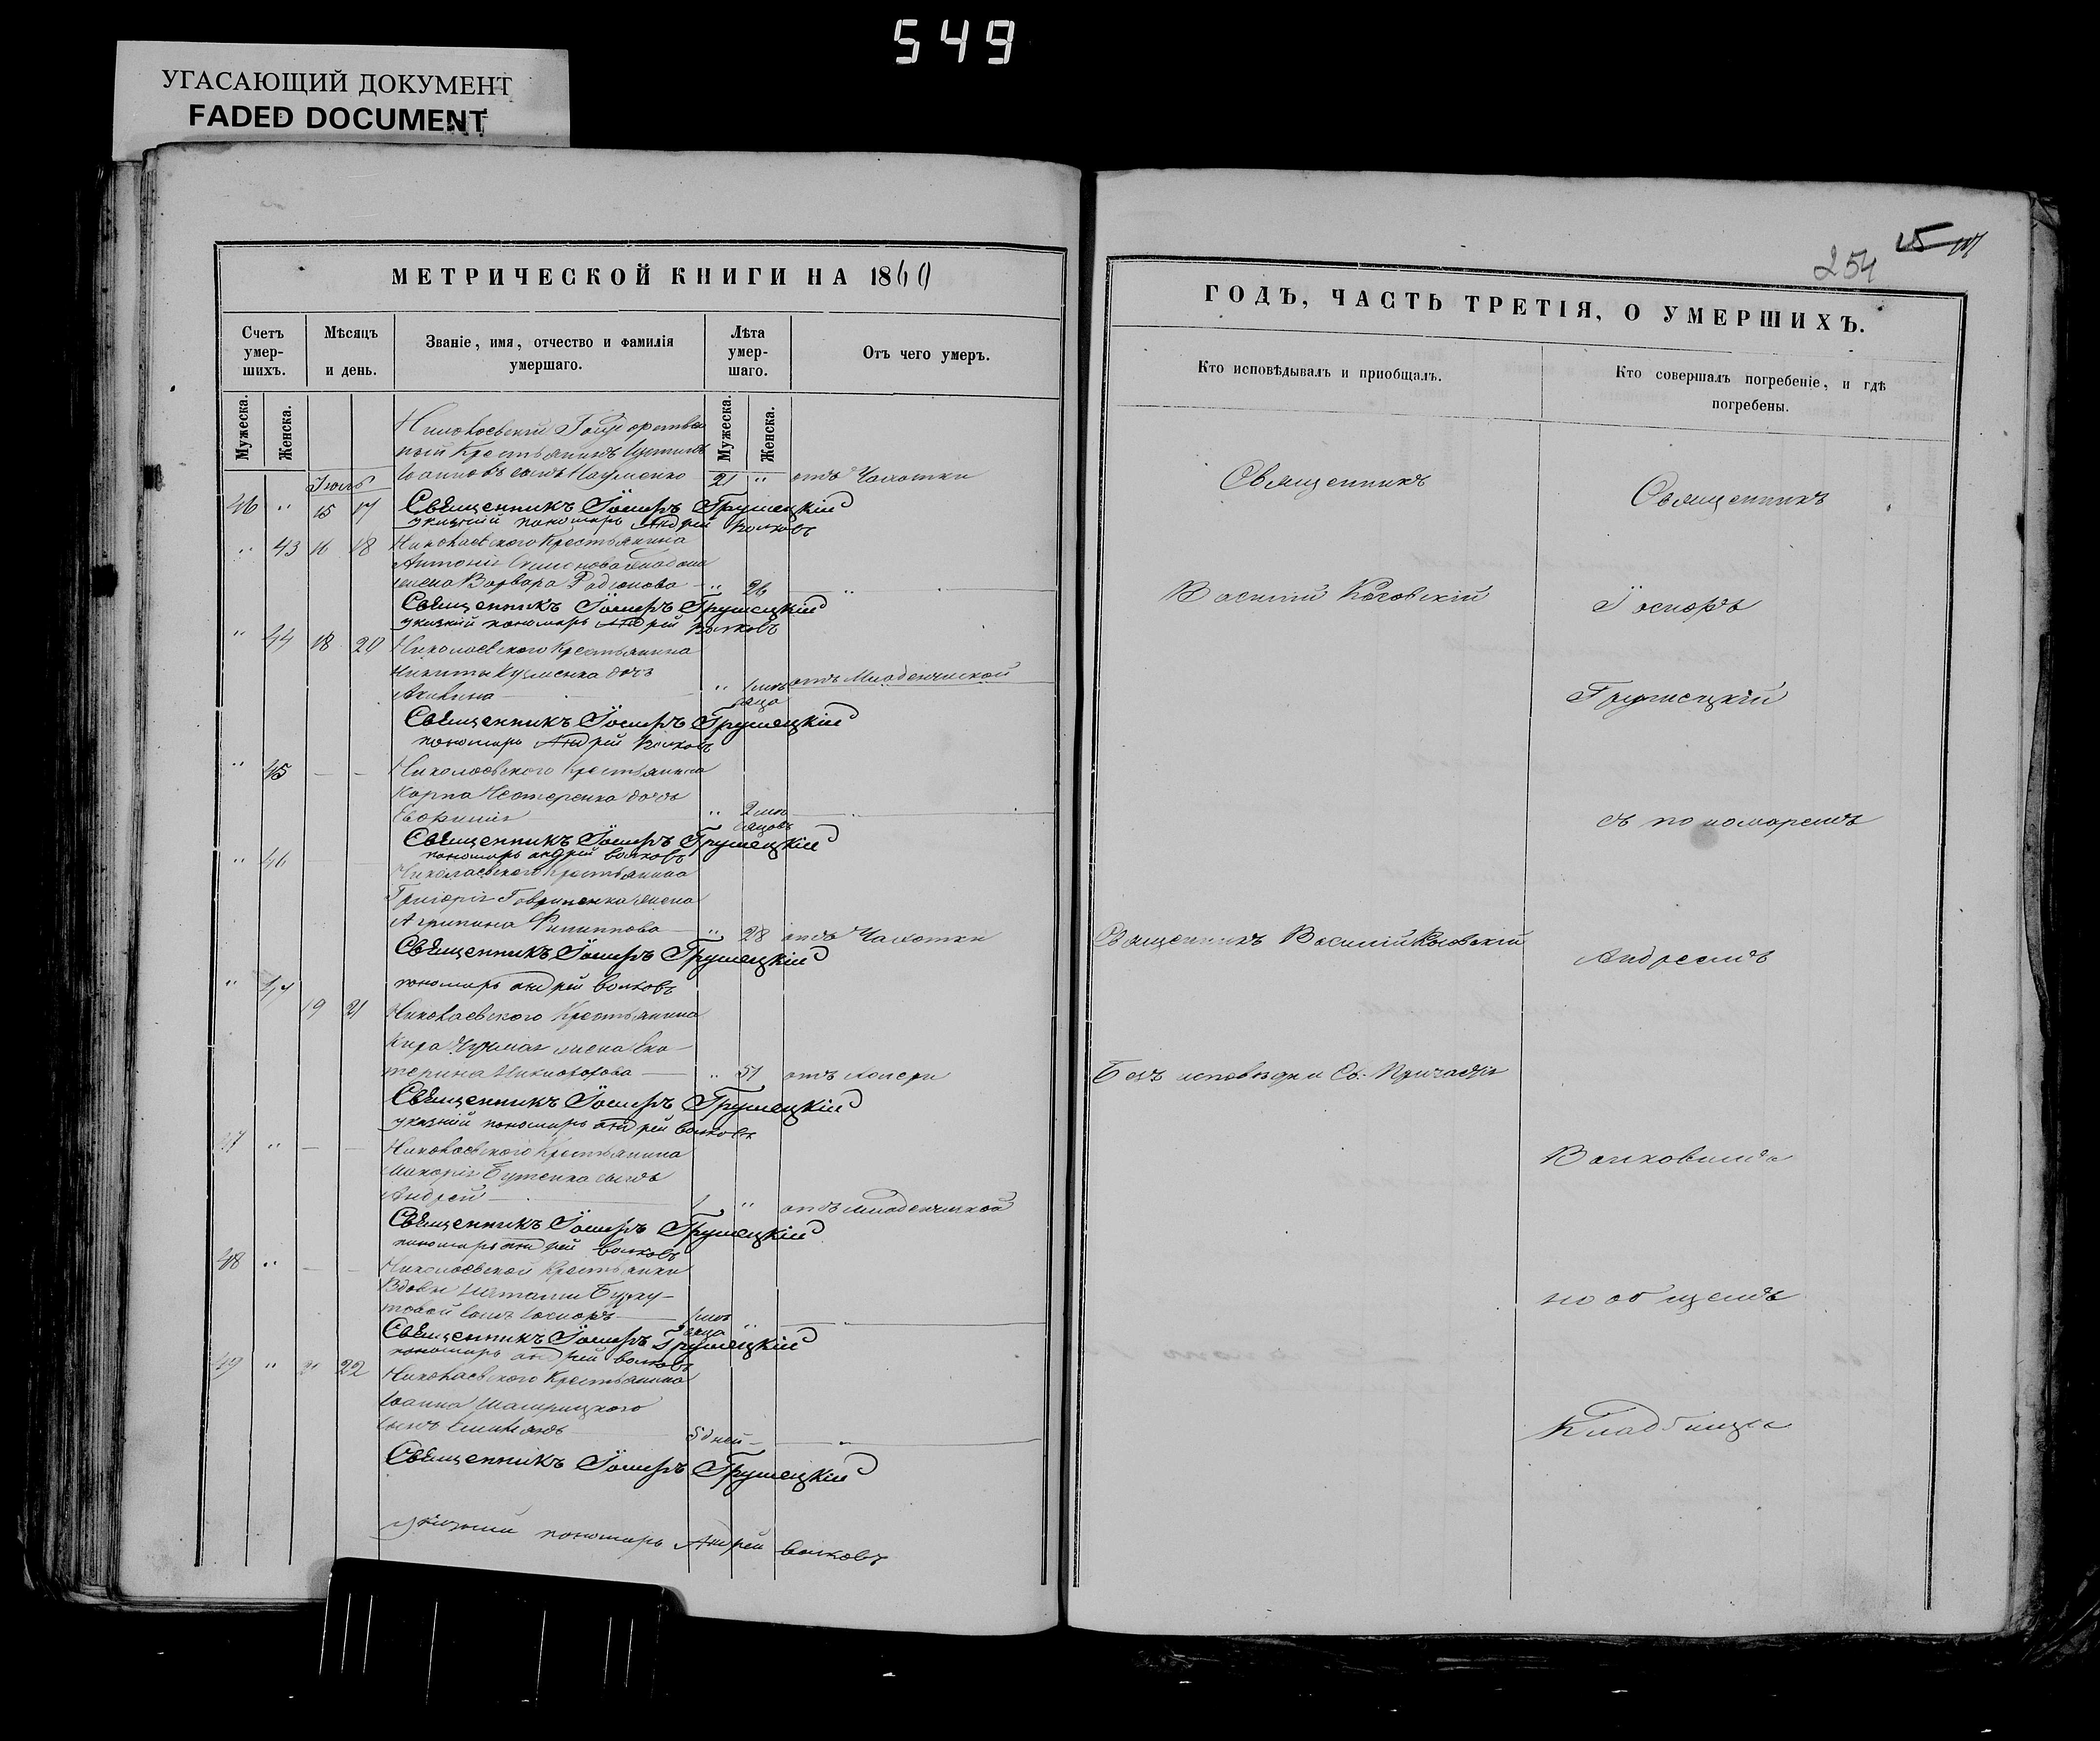 549
УГАСАЮЩИЙ ДОКУМЕНТ
FADED DOCUMENT
МЕТРИЧЕСКОЙ КНИГИ НА 1860
Счетъ умер-шихъ.
Мѣсяцъ и день.
Званіе, имя, отчество и фамилія умершаго.
Лѣта умер-шаго.
Отъ чего умеръ.
Мужеска.
Женска.
Мужеска.
Женска.
Николаевскій Государствен
ный Крестьянинъ Іустинъ
Іюль
Іоанновъ сынъ Науменко 21 " отъ Чахотки
46 " 15 17 Священникъ Іосифъ Грушецкій
указній пономарь Андрей Волковъ
" 43 16 18 Николаевского Крестьянина
Антонія Симонова
жена Варвара Радіонова " 26 "
Священникъ Іосифъ Грушецкій
указній пономарь Андрей Волковъ
" 44 18 20 Николаевского Крестьянина
Никиты Кузменка дочь
Акилина " 1 мѣсяца отъ Младенческой
Священникъ Іосифъ Грушецкій
пономарь Андрей Волковъ
" 45 — — Николаевского Крестьянина
Карпа Нестеренка дочь
Евфимія " 2 мѣсяцовъ "
Священникъ Іосифъ Грушецкій
пономарь андрей волковъ
" 46 Николаевского Крестьянина
Григорія Гавриленка жена
Агрипина Филиппова " 28 отъ Чахотки
Священникъ Іосифъ Грушецкій
пономарь андрей волковъ
" 47 19 21 Николаевского Крестьянина
Кира жена Ека-
терина Никифорова " 51 отъ холеры
Священникъ Іосифъ Грушецкій
указній пономарь андрей волковъ
47 " — — Николаевского Крестьянина
Макарія Бутенка сынъ
Андрей 1 " отъ младенческой
Священникъ Іосифъ Грушецкій
пономарь андрей волковъ
48 " — — Николаевской Крестьянки
Вдовы Наталіи
сынъ Іосифъ 1 мѣсяца " "
Священникъ Іосифъ Грушецкій
пономарь андрей волковъ
49 " 22 Николаевского Крестьянина
Іоанна
сынъ Емиліанъ 5 дней "
Священникъ Іосифъ Грушецкій
указній пономарь Андрей Волковъ
254
ГОДЪ, ЧАСТЬ ТРЕТІЯ, О УМЕРШИХЪ.
Кто исповѣдывалъ и приобщалъ.
Кто совершалъ погребеніе, и гдѣ погребены.
Священникъ
Василій Косовскій
Священникъ Василій Косовскій
Безъ исповѣди и Св. Причастія
Священникъ
Іосифъ
Грушецкій
съ пономаремъ
Андреемъ
Волковымъ
на общемъ
Кладбищѣ